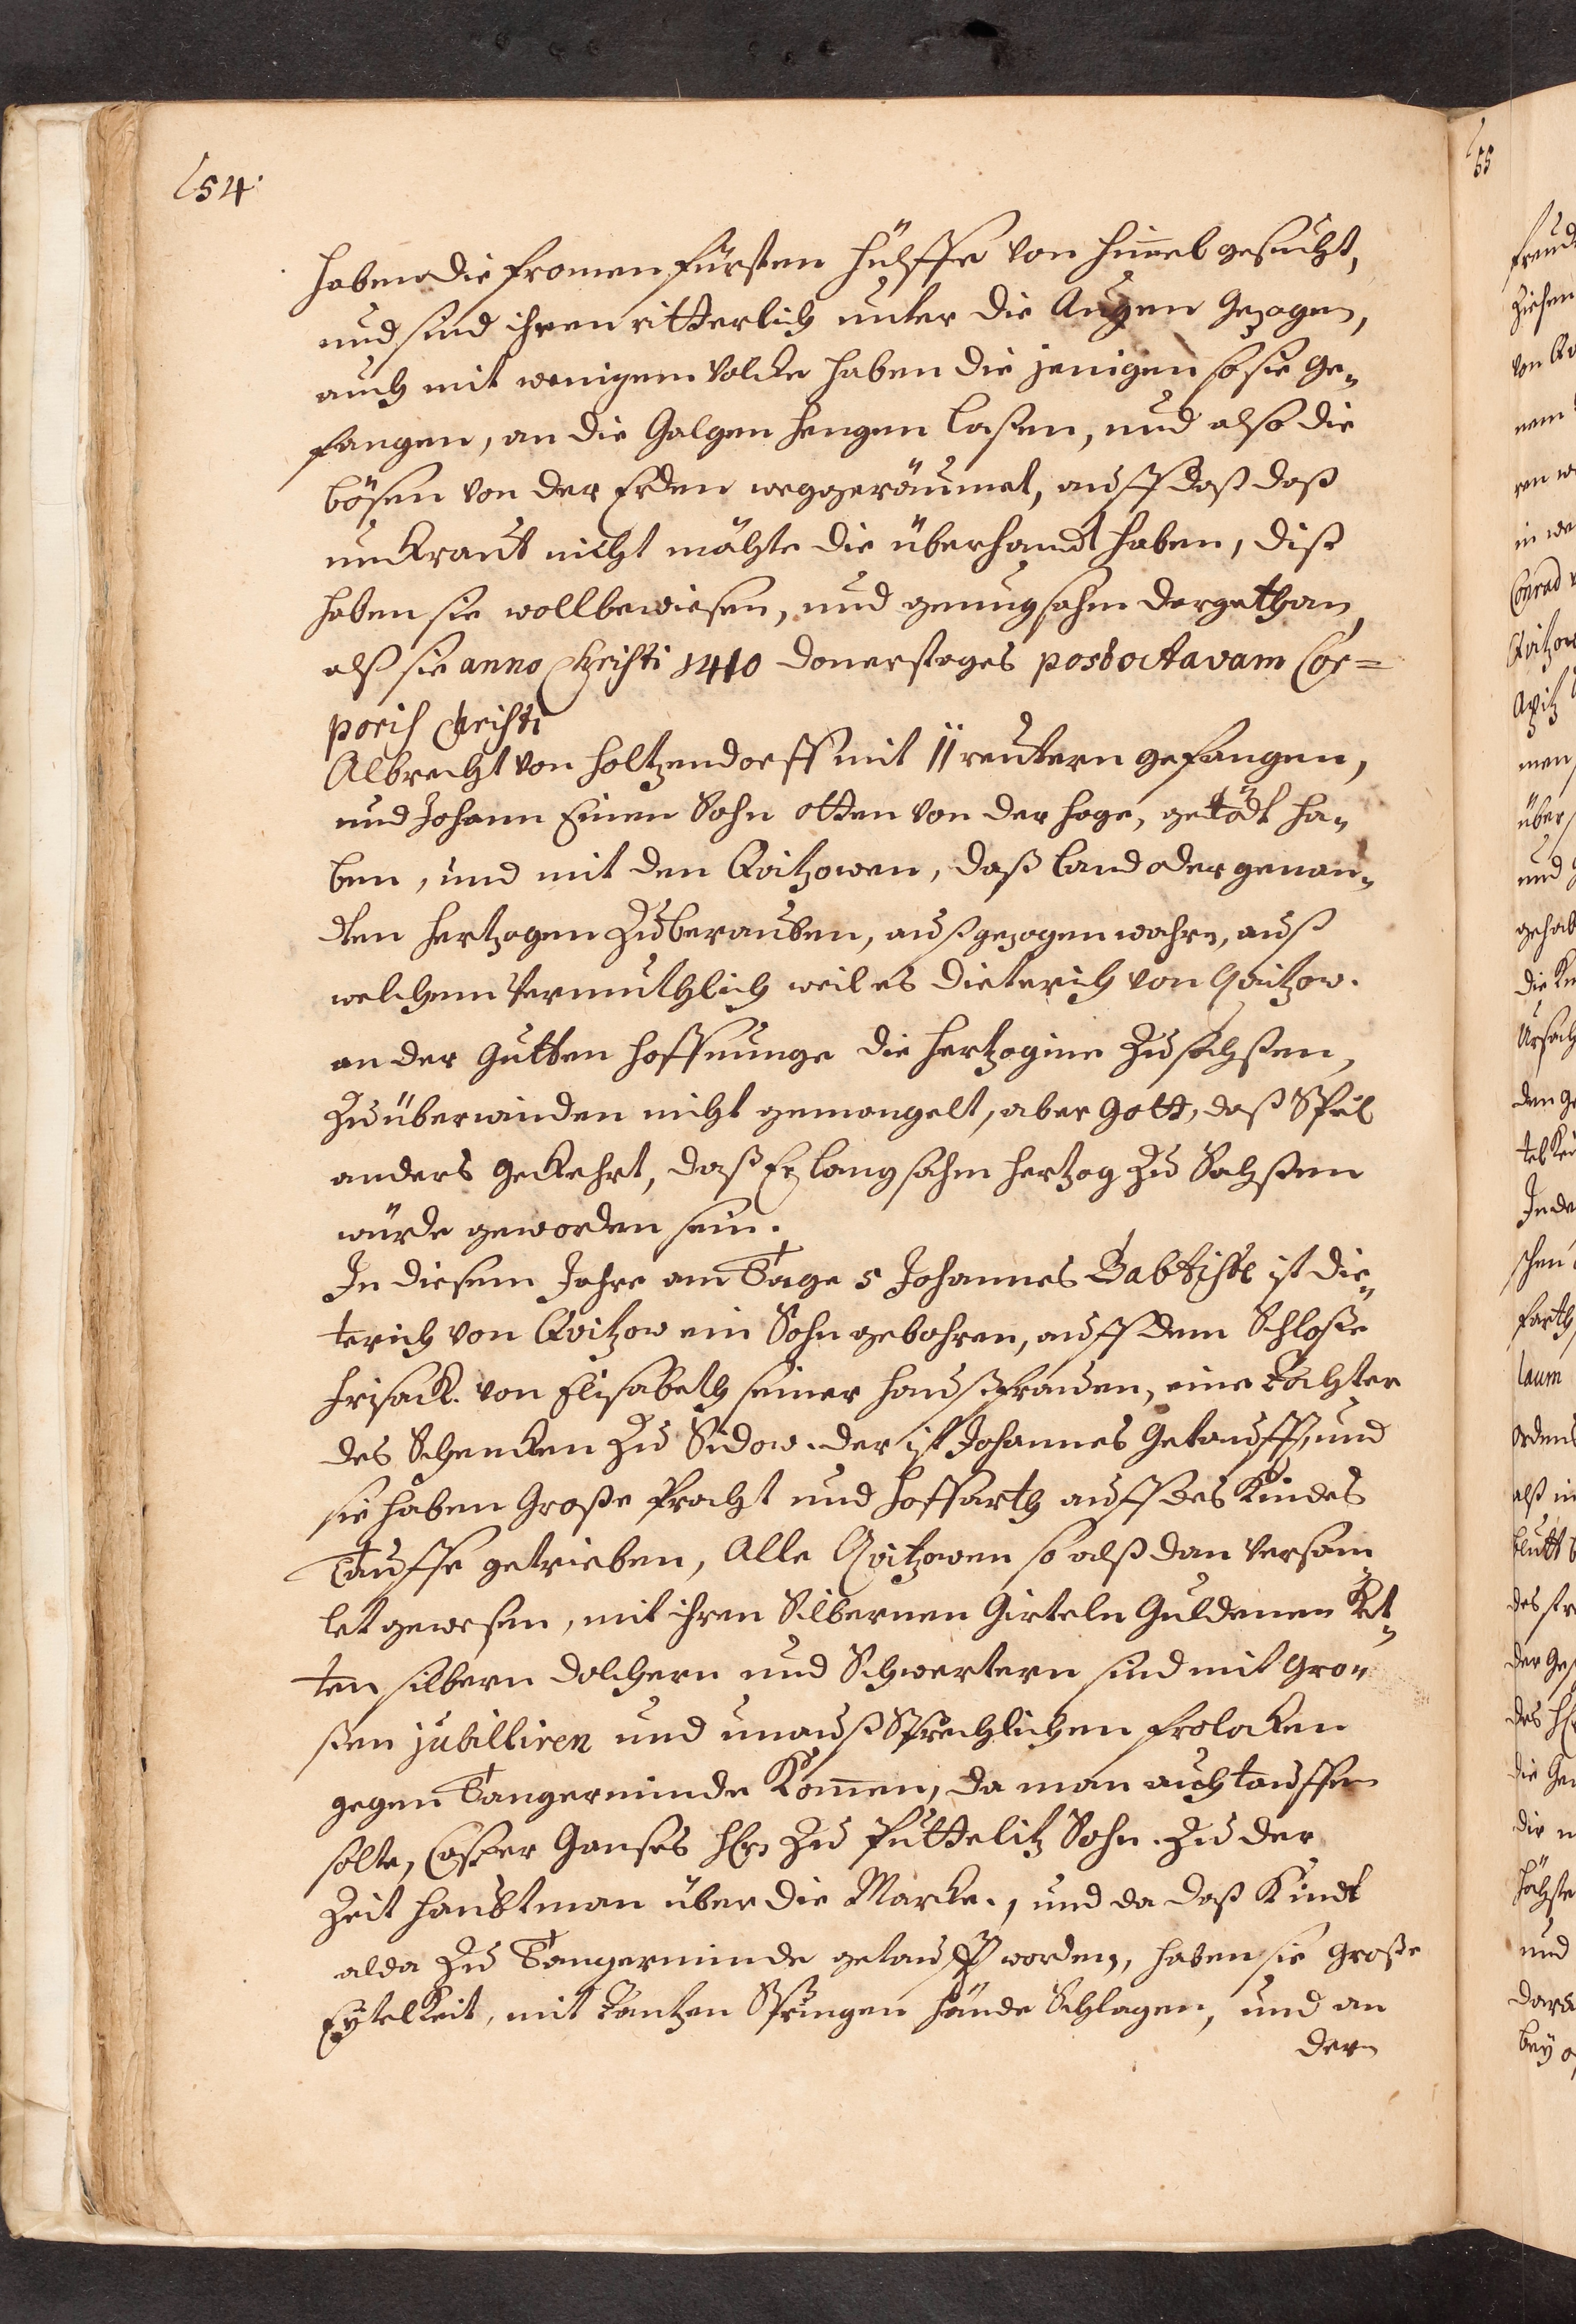 54.
haben die fromen fürsten hülffe von him̅el gesucht,
und sind ihnen ritterlich unter die Augen gezogen,
auch mit wenigem Volcke haben die jenigen so sie ge„
fangen, an die Galgen hengen laßen, und also die
bösen von der Erden weggeräumet, auff daß daß
unkraut nicht möchte die überhandt haben, diß
haben sie wollbewiesen, und genungsahm dargethan,
alß sie anno Christi 1410 donerstages post octavam Cor=
poris Christi
Albrecht von Holtzendorff mit 11 reutern gefangen,
und Johann Einen Sohn otten von der Hage, getödt ha„
ben, und mit den Qvitzowen, daß land oder genan„
dten Hertzogen Zuberauben, außgezogen wahren, auß
welchem Vermuthlich weil es Dieterich von Qvitzow.
an der Gutten hoffnunge die Hertzogine Zu sachsten,
Zu überwinden nicht gemangelt, aber Gott, daß Spiel
anders gekehrt, daß Er langsahm Hertzog Zu Sachsten
würde geworden sein.
In diesem Jahre am Tage S Johannes Babtiste ist Die„
terich von Qvitzow ein Sohn gebohren, auff dem Schloße
Frisack. von Elisabeth seiner Haußfrauen, eine Tochter
des Schencken Zu Sidow. der ist Johannes Getaufft, und
sie haben Große Pracht und hoffarth auff des Kindes
Tauffe getrieben, Alle Qvitzowen so alß dan Versam
let gewesen, mit ihren Silbernen Girteln Guldenen Ket„
ten silbern dolchern und Schwertern sind mit Gro„
ßen jubilliren und unauß Sprechlichen frolocken
gegen Tangerminde Kom̅en, da man auch tauffen
solte, Casper Ganses HErn Zu Puttelitz Sohn. Zu der
Zeit Haubtman über die Marcke., und da daß Kindt
alda Zu Tangerminde getaufft worden, haben sie große
Eytelkeit, mit Tantzen Springen hände Schlagen, und an
dern
55
freud
Ziehen
von Qv
nem
ren
in we
Conrad
Qvitzow
men
über
und
gehab
die
Ursach
den ge
In de
schen
farth
laum
Ordens
alß in
blutt
des
der Ges
des HEr
die Ge
die
höchste
und
dara
bey